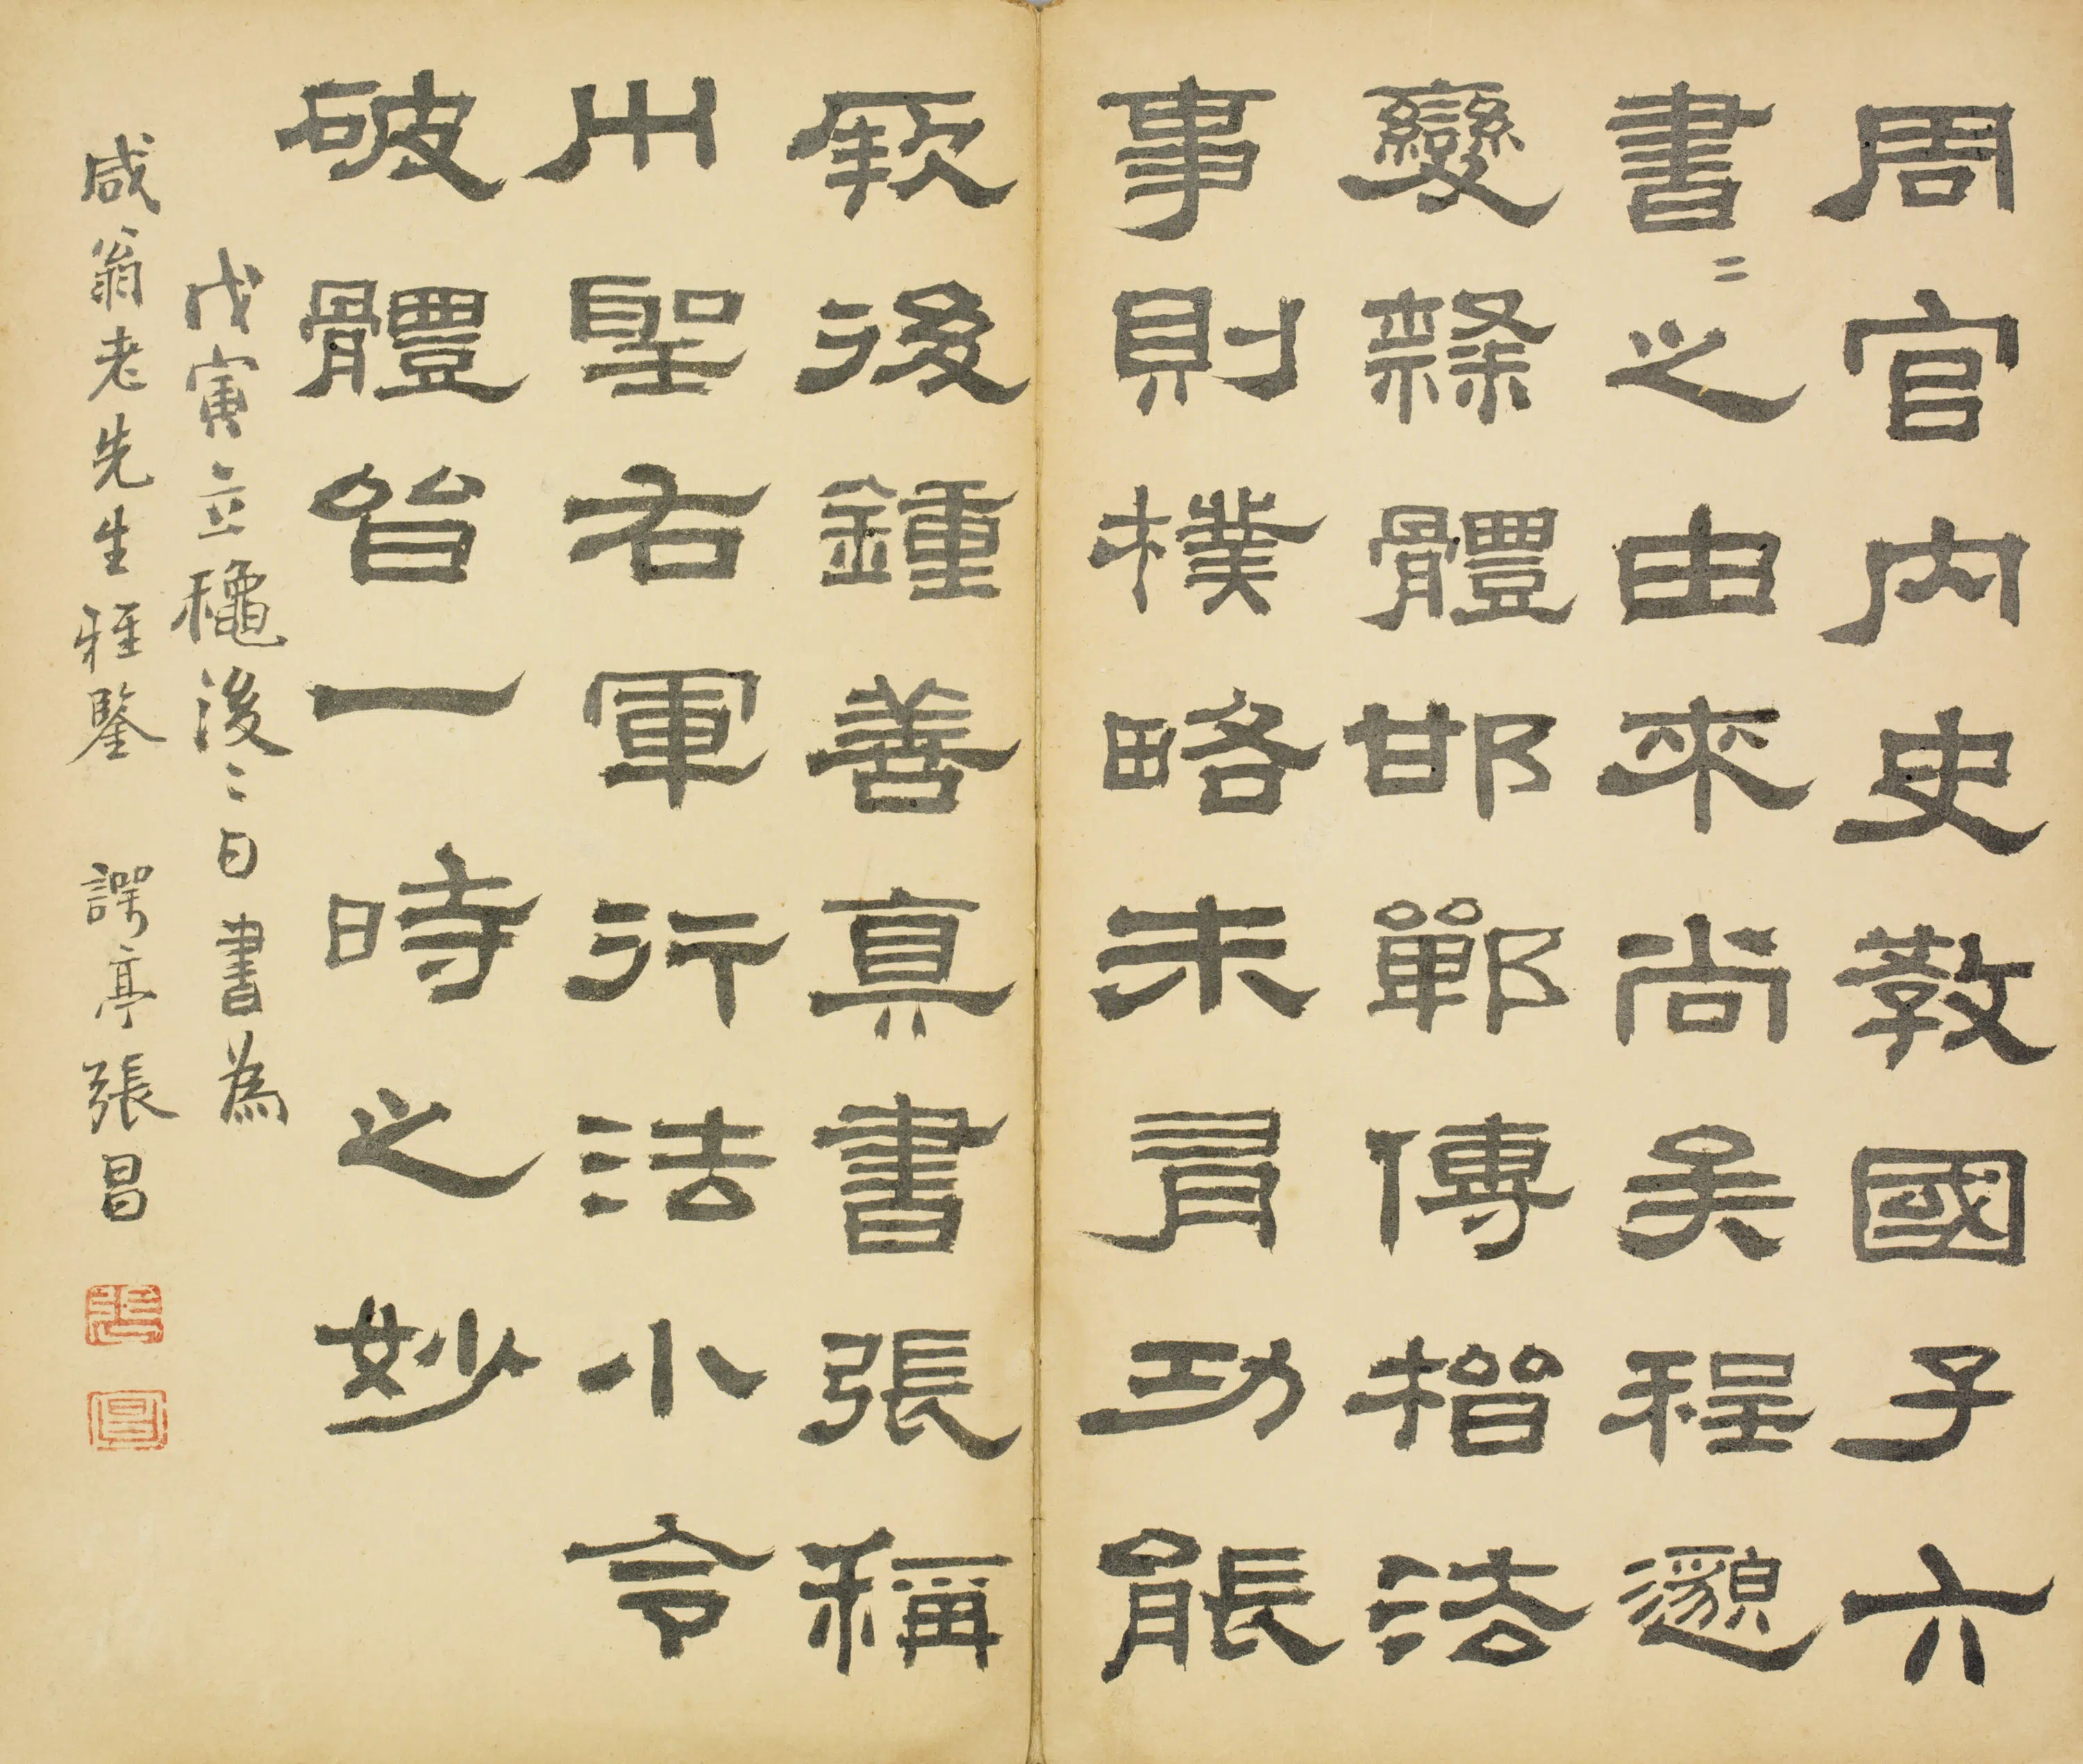 周官內史教國子六
書〻之由來尚矣程邈
變隸體邯鄲傳楷法
事則樸略未有功能
厥後鍾善真書張稱
艸聖右軍行法小令
破體皆一時之妙
戊寅立穐後二日書為
咸翁老先生雅鑒 諤亭張昌